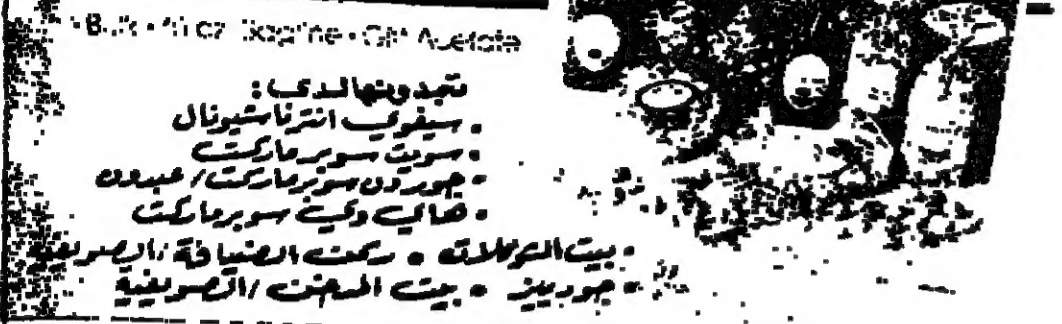 تجدونها لدى:
• سيفوي انترناشيونال
• سويت سوبر ماركت
• جوردن سوبر ماركت / عبدون
• هاي وي سوبر ماركت
• بيت المونلات • ركن الضيافة / الصويفية
• جودييز • بيت المحن / الصويفية